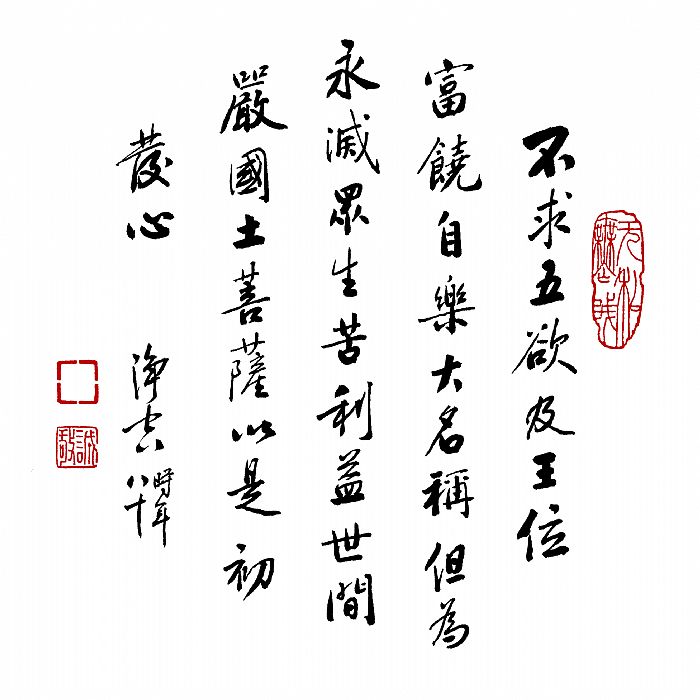 不求五欲及王位
富饒自樂大名稱但為
永滅眾生苦利益世間
嚴國土菩薩以是初
發心
淨空時年
八十
誠敬